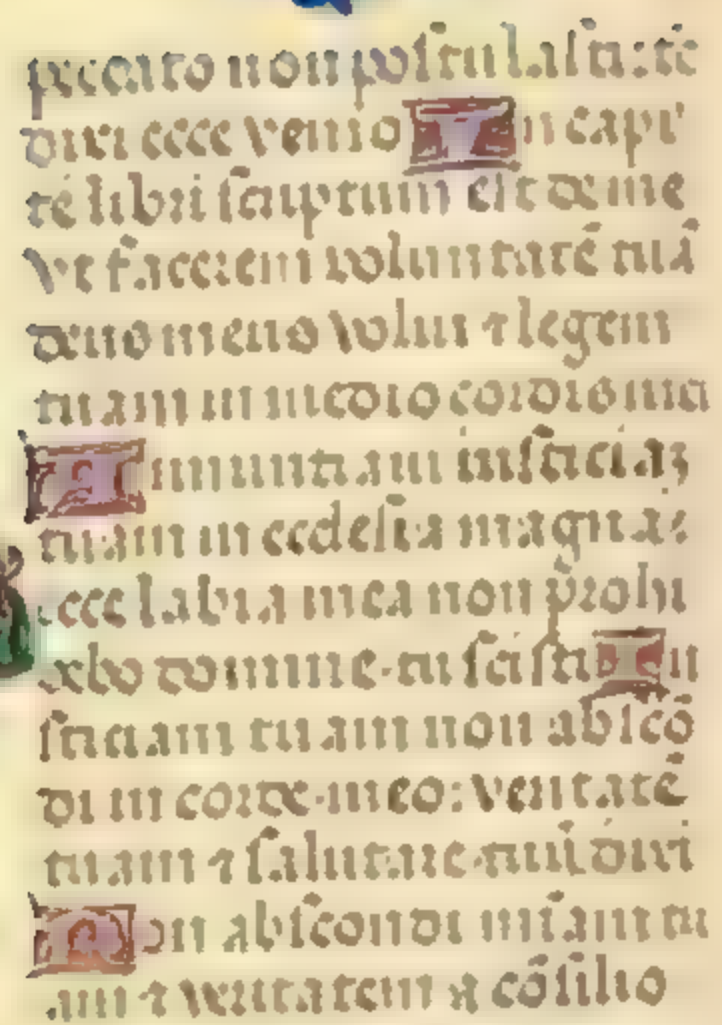 peccato non postulasti: tē
dixi ecce venio In capi
te libri scriptum est de me
Vt facerem voluntatē tuā
deus meus volui ⁊ legem
tuam in medio cordis mei
Annuntiaui iusticiaȝ
tuam in ecclesia magna:
ecce labia mea non ꝓhi
bebo domine tu scisti Iu
sticiam tuam non abscō
di in corde meo: veritatē
tuam ⁊ salutare tuū dixi
Non abscondi mīam tu
am ⁊ veritatem a cōsilio